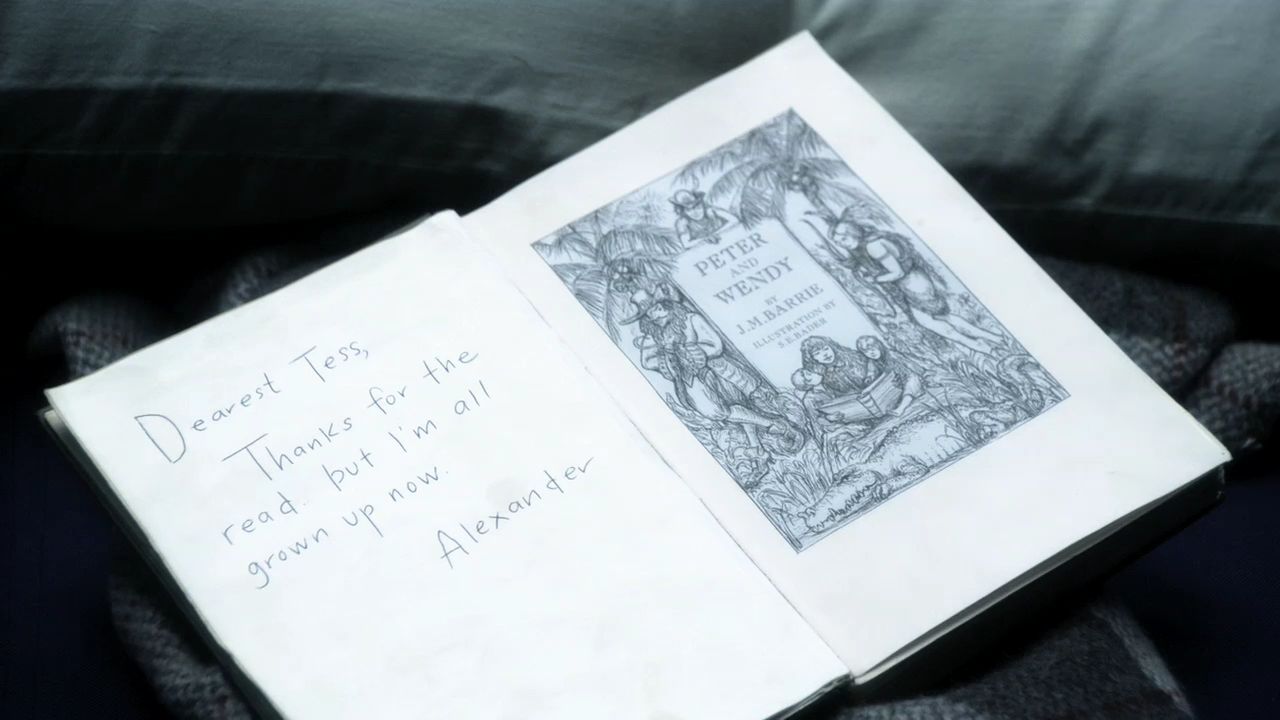 Dearest Tess,
Thanks for the
read. but I'm all
grown up now.
Alexander
PETER
AND
WENDY
BY
J.M.BARRIE
ILLUSTRATION BY
S.E.BADER